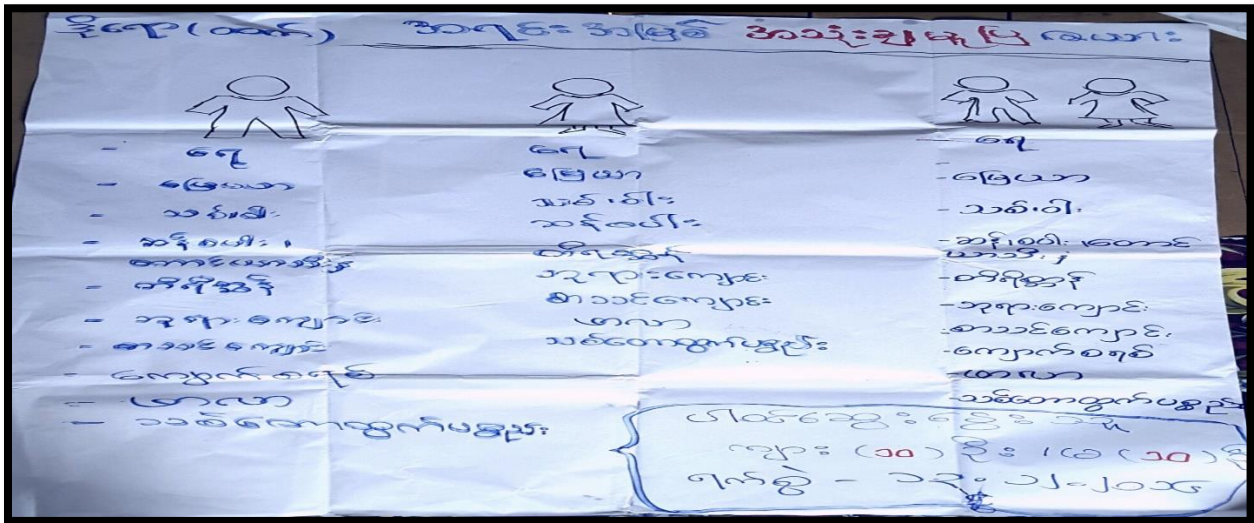 ဒိုးရော (ထက်) အရင်းအမြစ် အသုံးချမှုပြ ဇယား
- ရေ
- မြေယာ
- သစ်၊ ဝါး
- ဆန်စပါး၊
တောင်ယာသီးနှံ
- တိရိစ္ဆာန်
- ဘုရားကျောင်း
- စာသင်ကျောင်း
- ကျောက်စရစ်
- ဖာလာ
- သစ်တောထွက်ပစ္စည်း
ရေ
မြေယာ
သစ်၊ ဝါး
ဆန်စပါး
တိရစ္ဆာန်
ဘုရားကျောင်း
စာသင်ကျောင်း
ဖာလာ
သစ်တောထွက်ပစ္စည်း
- ရေ
- မြေယာ
- သစ်၊ ဝါး
- ဆန်၊ စပါး၊ တောင်
ယာသီးနှံ
- တိရိစ္ဆာန်
- ဘုရားကျောင်း
- စာသင်ကျောင်း
- ကျောက်စရစ်
- ဖာလာ
- သစ်တောထွက်ပစ္စည်း
ပါဝင်ဆွေးနွေးသူ
ကျား (၁၀) ဦး၊ မ (၁၀) ဦး
ရက်စွဲ -